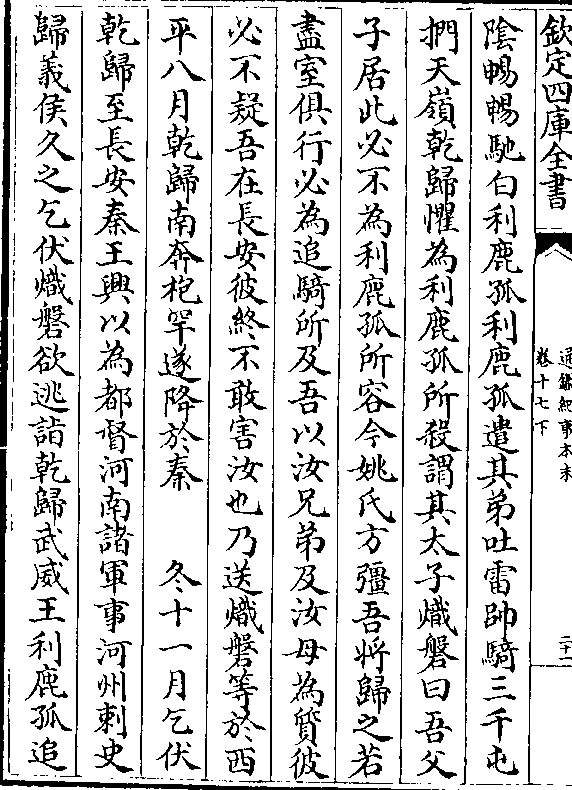 欽定四庫全書
通鑑紀事本末
卷十七下
二十一
陰暢暢馳白利鹿孤利鹿孤遣其弟吐雷帥騎三千屯
捫天嶺乾歸懼為利鹿孤所殺謂其太子熾磐曰吾父
子居此必不為利鹿孤所容今姚氏方彊吾將歸之若
盡室俱行必為追騎所及吾以汝兄弟及汝母為質彼
必不疑吾在長安彼終不敢害汝也乃送熾磐等於西
平八月乾歸南奔枹罕遂降於秦　冬十一月乞伏
乾歸至長安秦王興以為都督河南諸軍事河州刺史
歸義侯久之乞伏熾磐欲逃詣乾歸武威王利鹿孤追